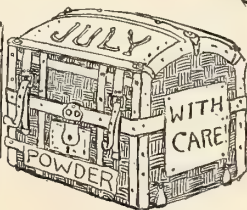 JULY
WITH
CARE!
POWDER